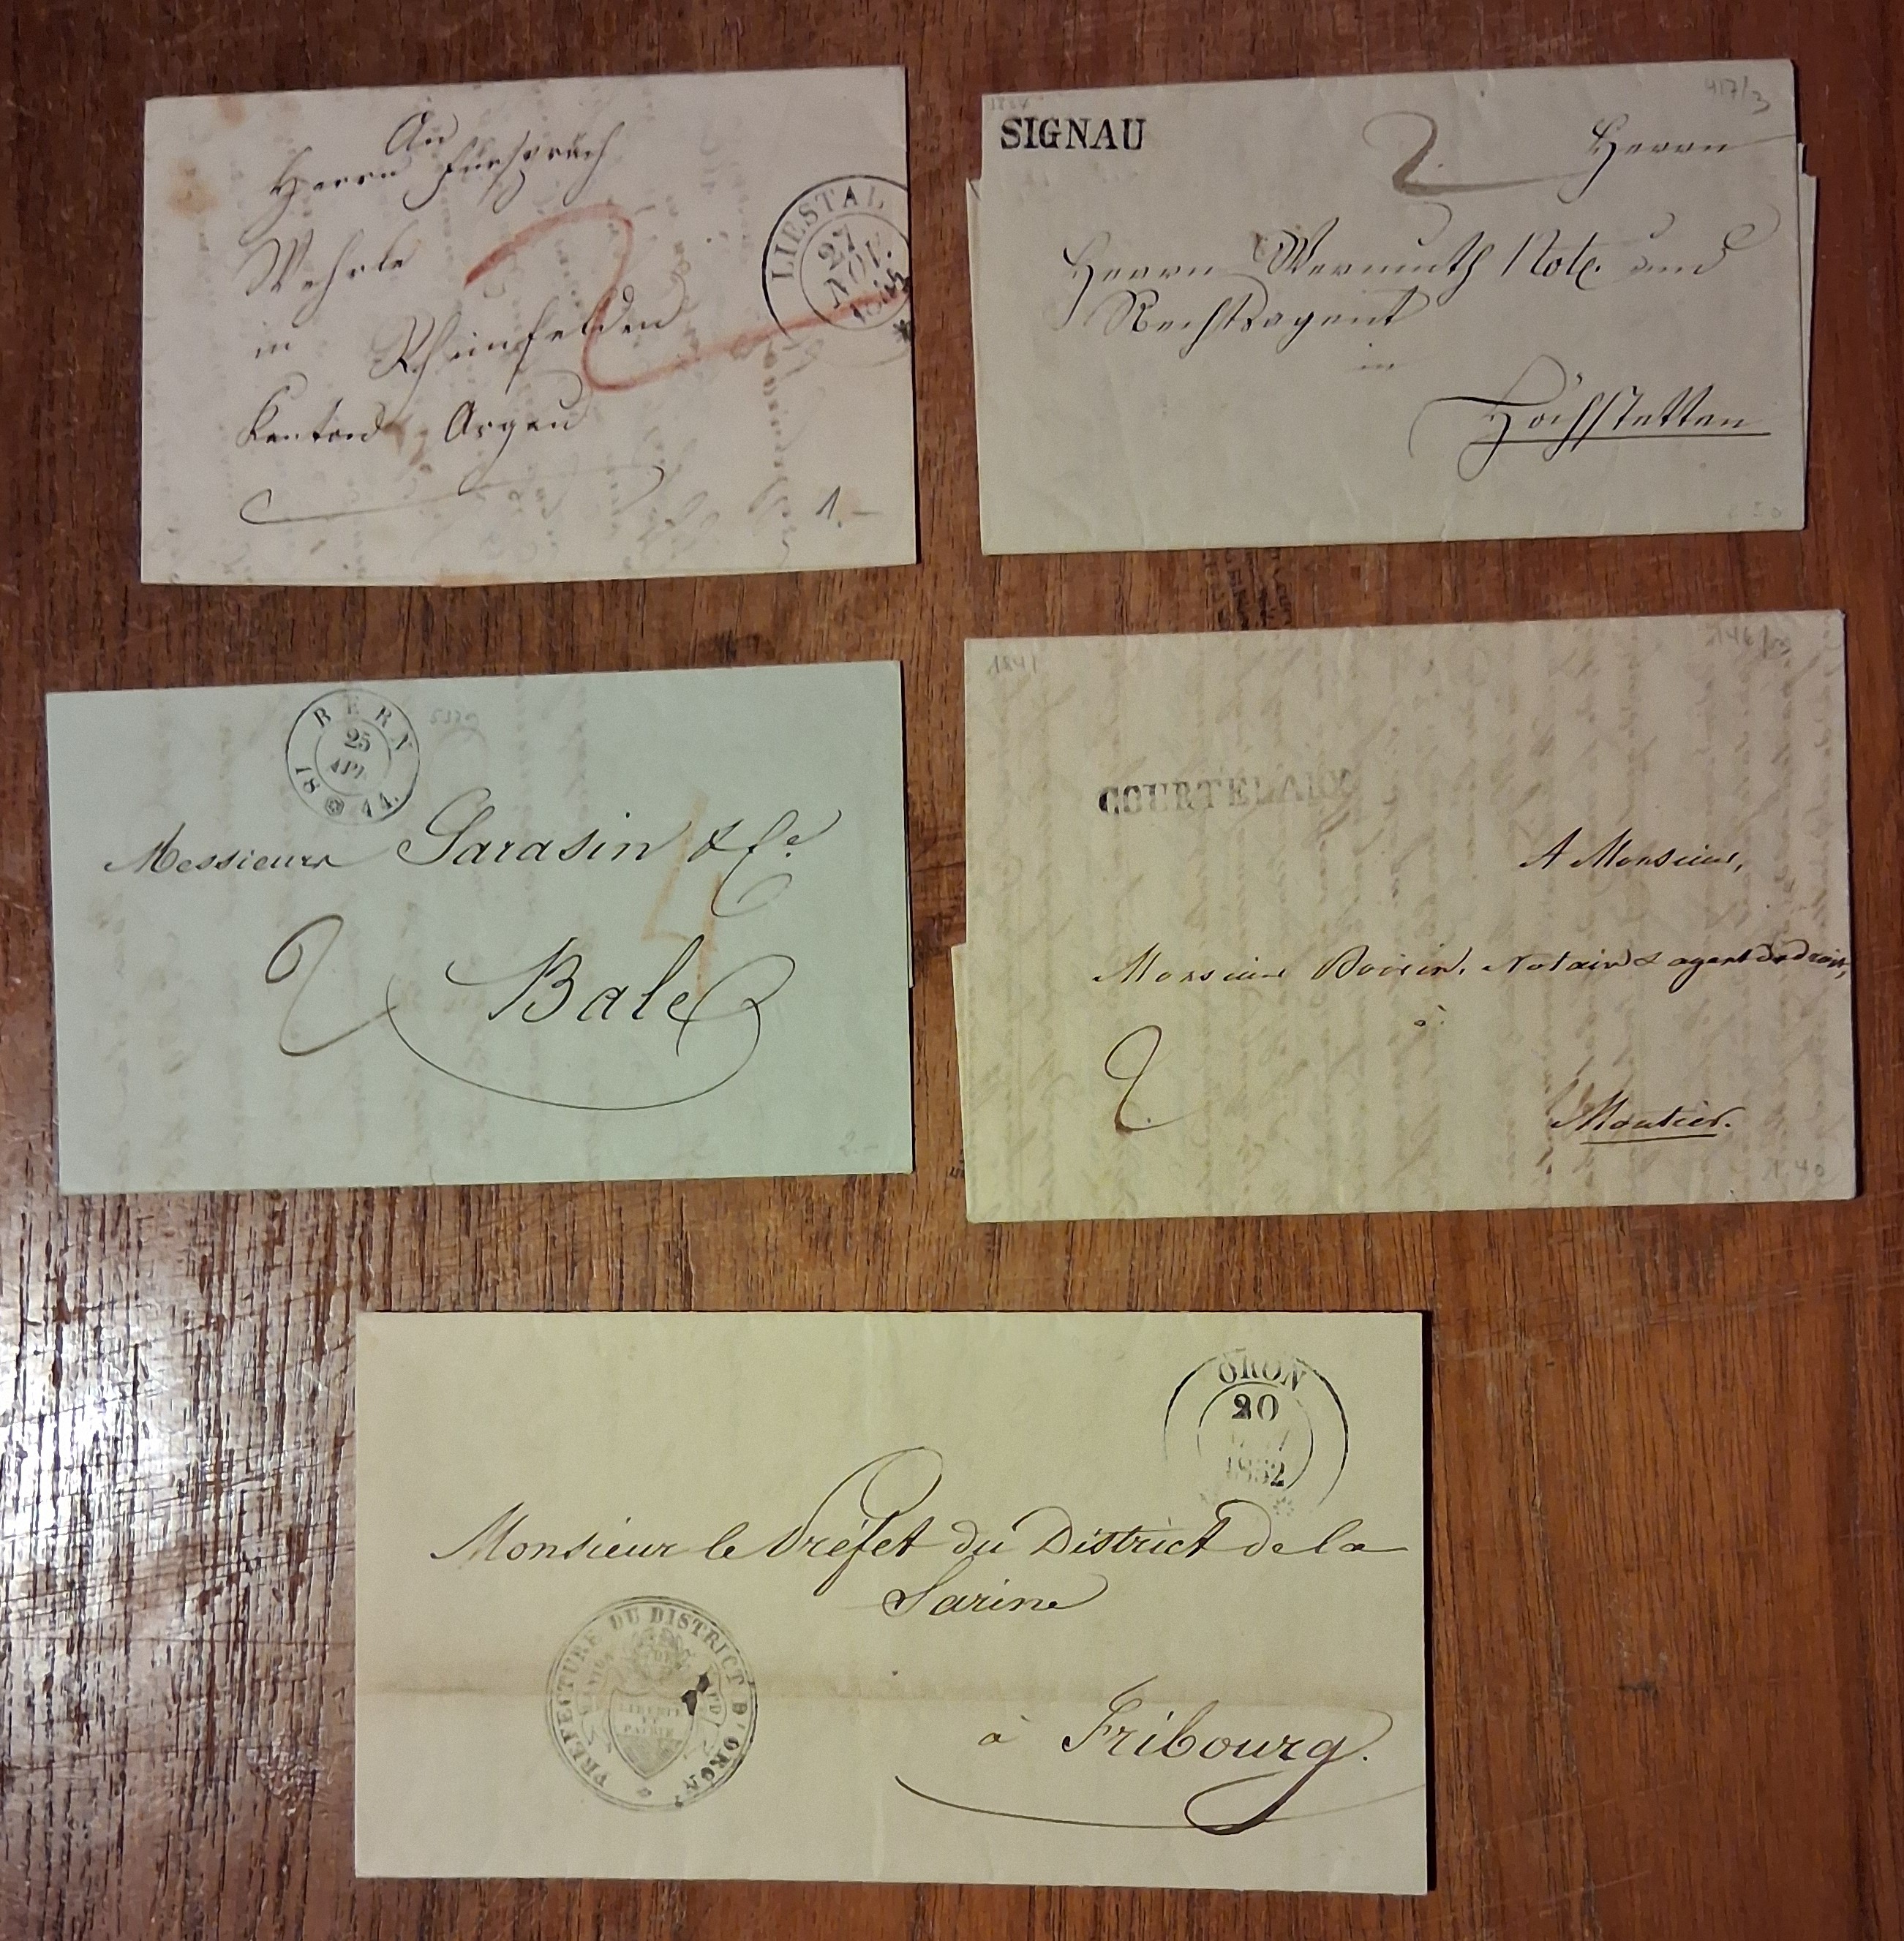 An
Herrn Fürsprech
Wehrle
in Rheinfelden
Kanton Argau
2
LIESTAL
27
NOV.
1.—
SIGNAU
417/3
2
Herrn
Herrn Wermuth Not. und
Rechtsagent
in
Höchstetten
BERN
25
APR
18 44
Messieurs Sarasin & Ce.
4
2
Bale
2.—
1841
COURTELARY
A Monsieur,
Monsieur Voisin, Notaire & agent de droit,
à
2
Moutier.
1.40
ORON
20
1852
Monsieur le Préfet du District de la
Sarine
à Fribourg.
PREFECTURE DU DISTRICT D'ORON
LIBERTÉ
ET
PATRIE